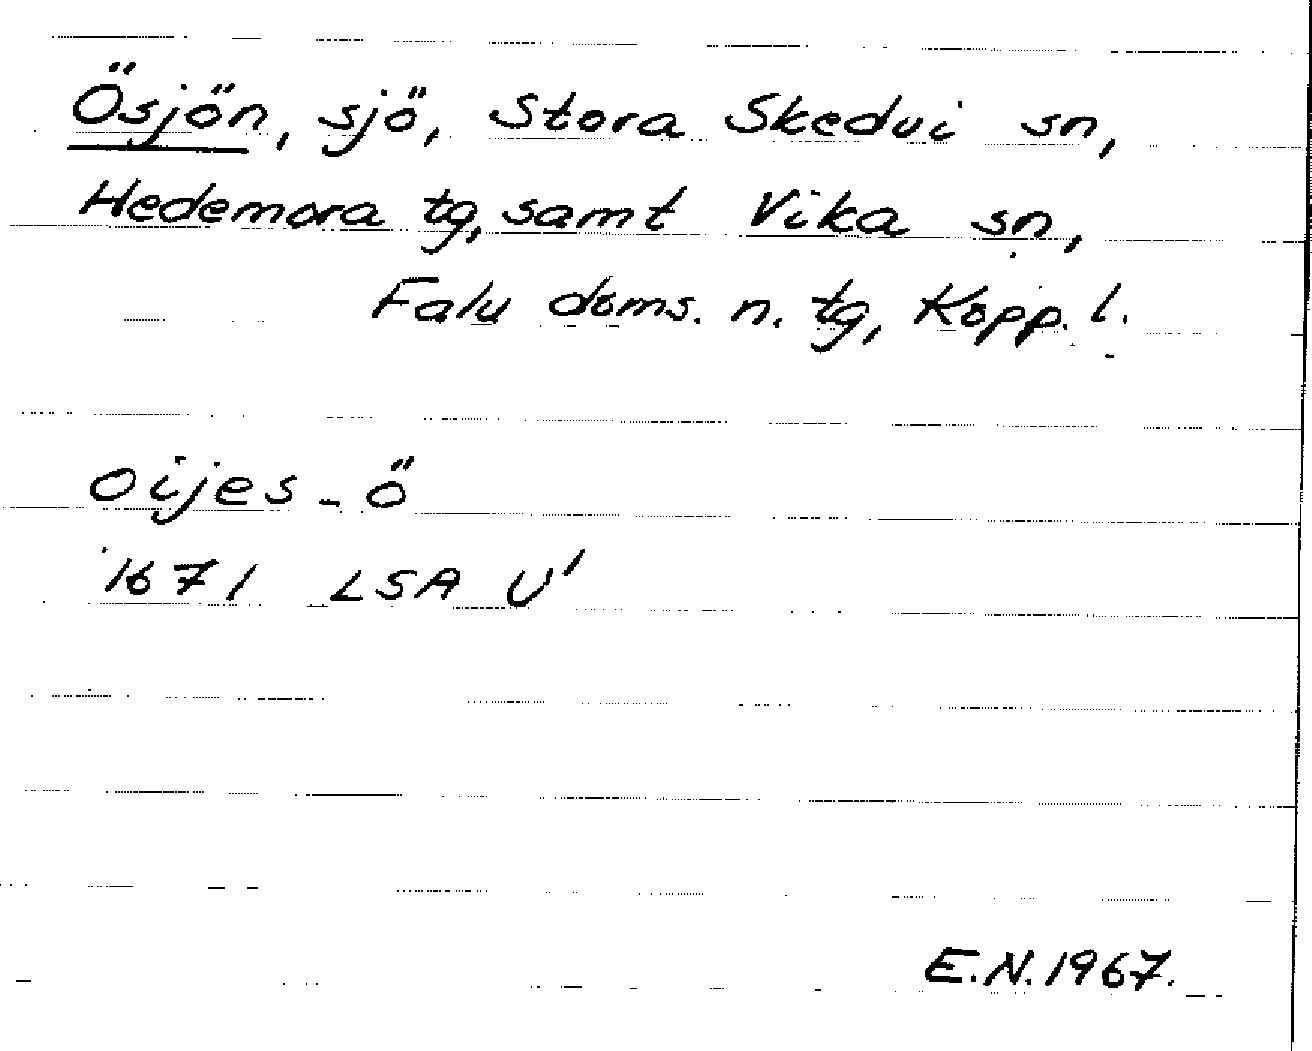 Ösjön, sjö, Stora Skedvi sn,
Hedemora tg, samt Vika sn,
Falu doms. n. tg, Kopp. l.
oijes-ö
1671 LSA U'
E.N. 1967.